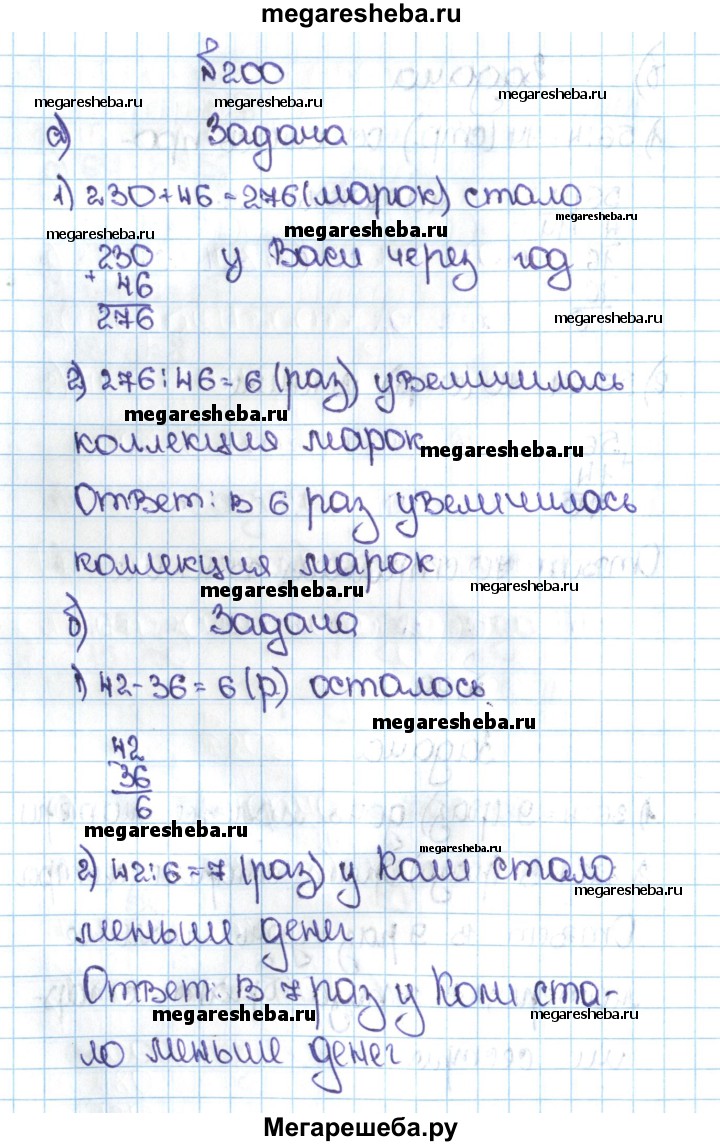 megaresheba.ru
№200
megaresheba.ru megaresheba.ru megaresheba.ru
а) Задача
1) 230+46=276(марок) стало
megaresheba.ru
megaresheba.ru megaresheba.ru
230 у Васи через год
+ 46
276
megaresheba.ru
2) 276:46=6 (раз) увеличилась
megaresheba.ru
коллекция марок
megaresheba.ru
Ответ: в 6 раз увеличилась
коллекция марок
megaresheba.ru megaresheba.ru
б) Задача
1) 42-36=6(р) осталось
megaresheba.ru
42
- 36
6
megaresheba.ru
megaresheba.ru
2) 42:6=7 (раз) у Коли стало
megaresheba.ru
меньше денег
Ответ: в 7 раз у Коли ста-
megaresheba.ru megaresheba.ru
ло меньше денег
Мегарешеба.ру